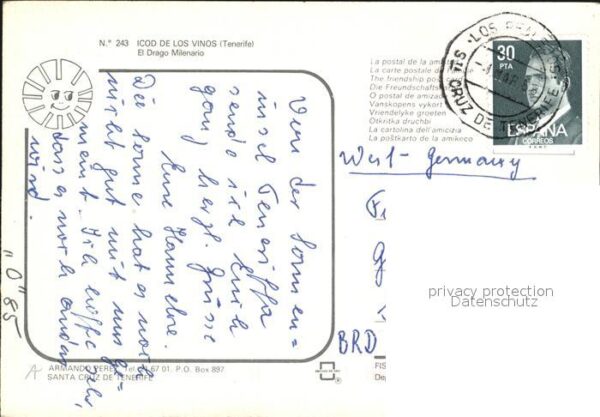 N.º 243 ICOD DE LOS VINOS (Tenerife)
El Drago Milenario
Von der Sonnen=
insel Teneriffa
sende ich Euch
ganz herzl. Grüsse
Eure Hannelore.
Die Sonne hat es noch
nicht gut mit uns ge=
meint. Ich hoffe sehr,
dass es noch anders
wird.
"0" 85
La postal de la amis
La carte postale d
The friendship post
Die Freundschafts
O postal de amizad
Vanskopens vykort
Vriendelyke groeten
Otkritka druchbi
La cartolina dell'amicizia
La poŝtkarto de la amikeco
STA. CRUZ DE TENERIFE
30
PTA
ESPAÑA
CORREOS
West-Germany
BRD
privacy protection
Datenschutz
ARMANDO PEREZ 67 01. P.O. Box 897
SANTA CRUZ DE TENERIFE
FIS
De
A